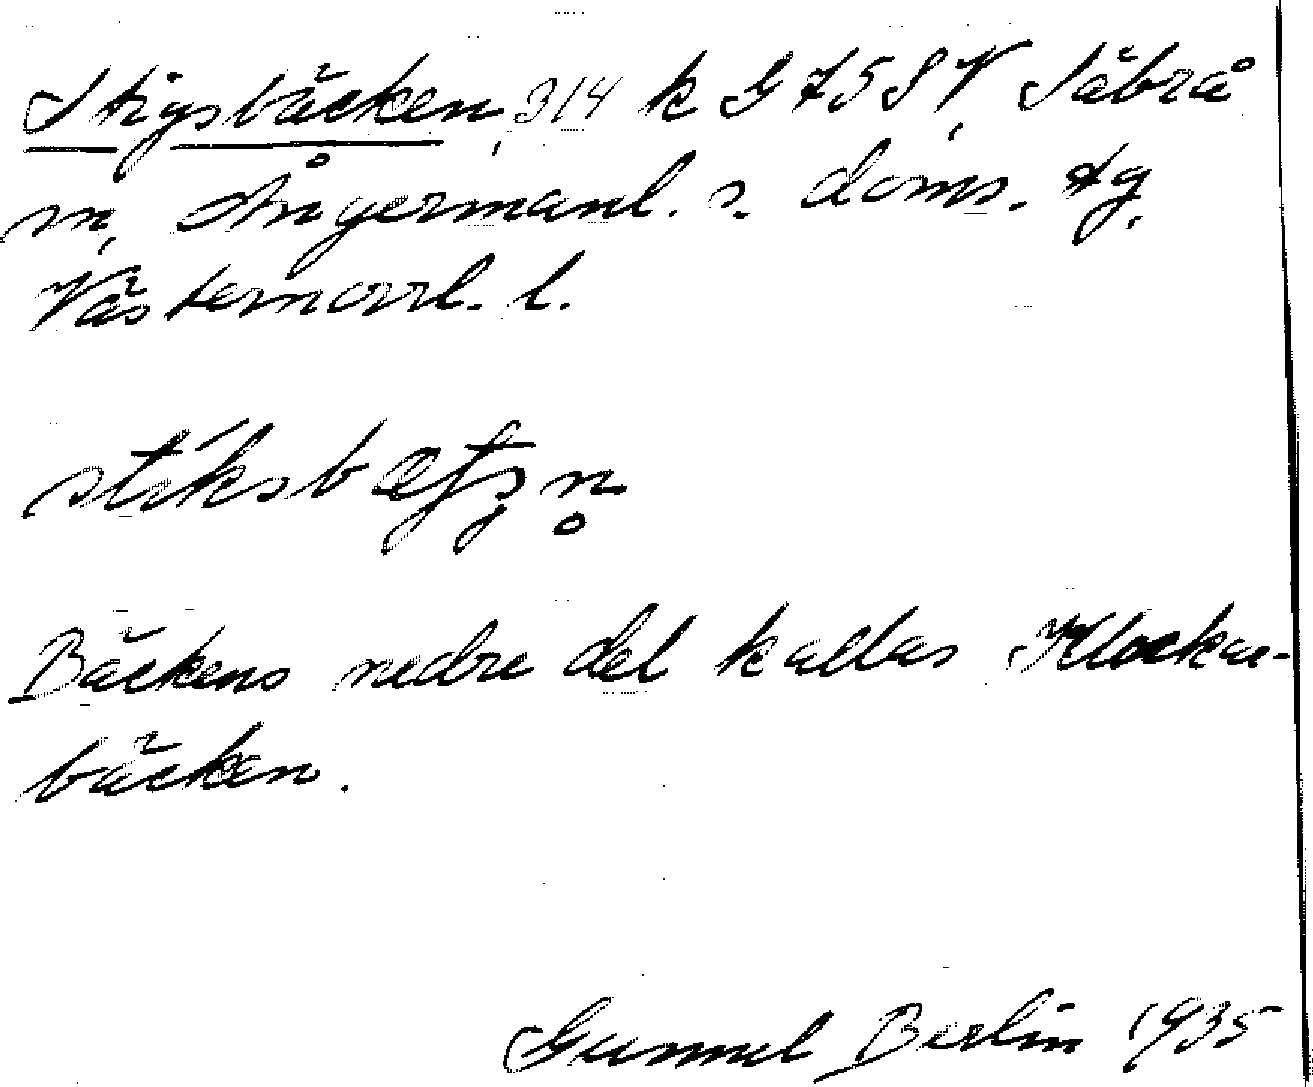 Stigsbäcken, 314 k G 75 S V, Säbrå
sn, Ångermanl. s. doms. tg,
Västernorrl. l.
Bäckens nedre del kallas Klockar-
bäcken.
Gunnel Berlin 1935